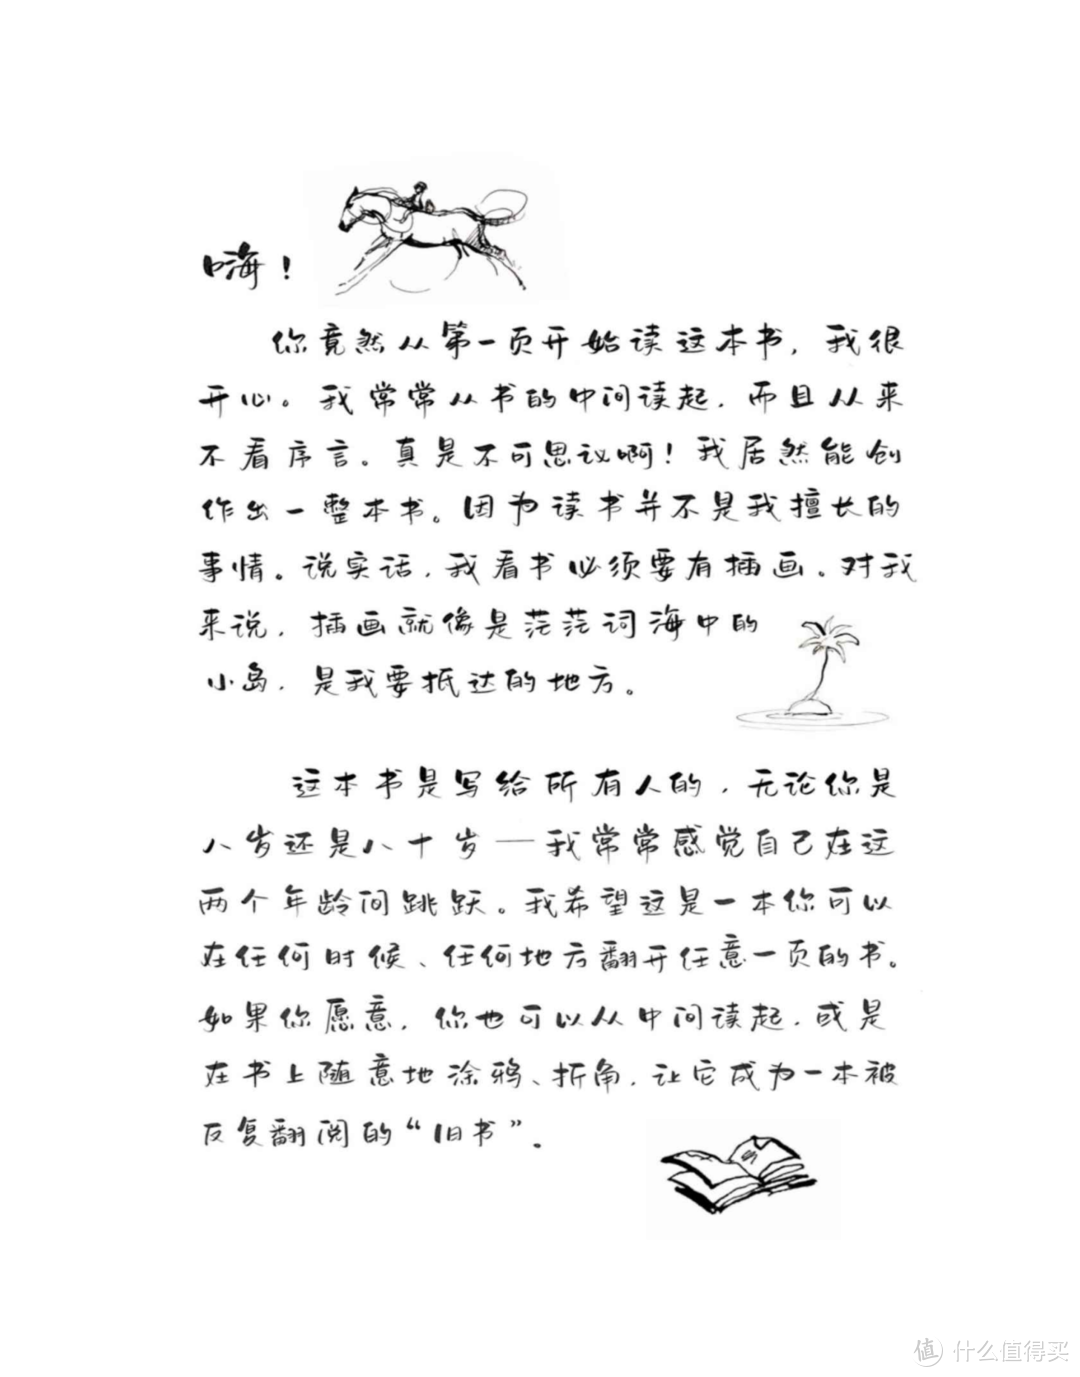 嗨！
你竟然从第一页开始读这本书，我很
开心。我常常从书的中间读起，而且从来
不看序言。真是不可思议啊！我居然能创
作出一整本书。因为读书并不是我擅长的
事情。说实话，我看书必须要有插画。对我
来说，插画就像是茫茫词海中的
小岛，是我要抵达的地方。
这本书是写给所有人的，无论你是
八岁还是八十岁——我常常感觉自己在这
两个年龄间跳跃。我希望这是一本你可以
在任何时候、任何地方翻开任意一页的书。
如果你愿意，你也可以从中间读起，或是
在书上随意地涂鸦、折角，让它成为一本被
反复翻阅的“旧书”。
值 什么值得买